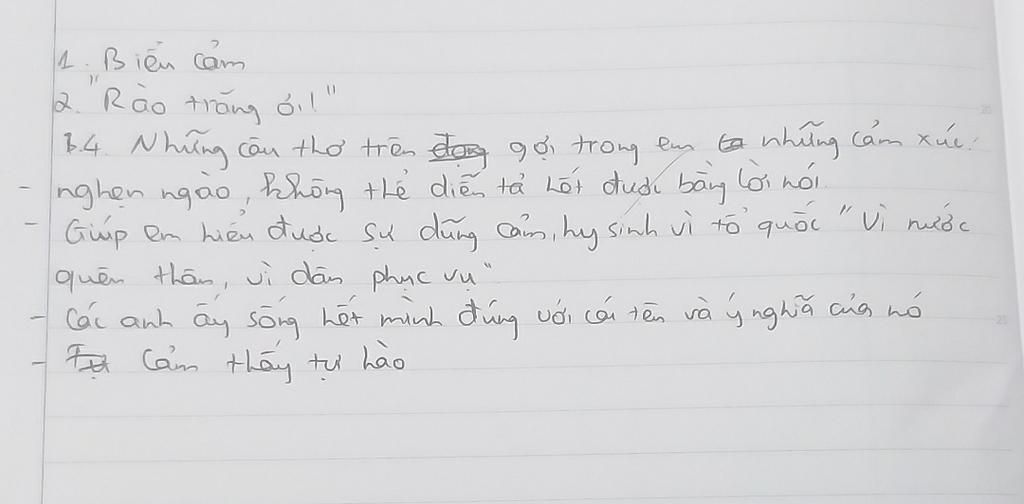 1. Biểu cảm
2. "Rào trăng ơi!"
3.4. Những câu thơ trên gợi trong em những cảm xúc:
- nghẹn ngào, không thể diễn tả hết được bằng lời nói.
- Giúp em hiểu được sự dũng cảm, hy sinh vì tổ quốc "Vì nước
quên thân, vì dân phục vụ"
- Các anh ấy sống hết mình đúng với cái tên và ý nghĩa của nó
- Cảm thấy tự hào